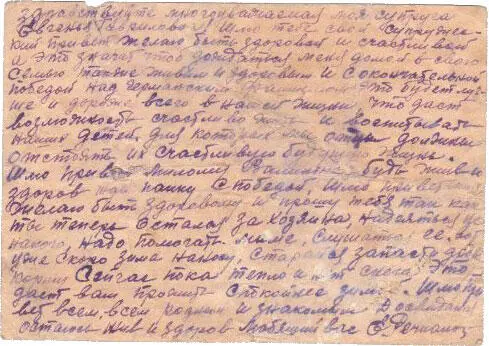 здравствуйте многоуважаемая моя супруга
Евгения Гавриловна Шлю тебе свой супружес-
кий привет желаю быть здоровой и счастливей
а это значит чтоб дождаться меня домой в свою
семью также живым и здоровым и с окончательной
победой над германским фашизмом Это будет луч-
ше и дороже всего в нашей жизни, что даст
возможность счастливо жить и воспитывать
наших детей, для которых мы отцы должны
отстоять их счастливую будущую жизнь.
Шлю привет милому будь жив и
здоров жди папку с победой, Шлю привет
желаю быть здоровым и прошу тебя так как
ты теперь остался за хозяина, надеяться не
на кого, надо помогать маме, слушаться её. вот
уже скоро зима наносу, старайся запасти дров
корма Сейчас пока тепло и нет снега, Это
даст вам прожить спокойнее зиму. Шлю при
вет всем, всем родным и знакомым До свидания
остаюсь жив и здоров Любящий вас